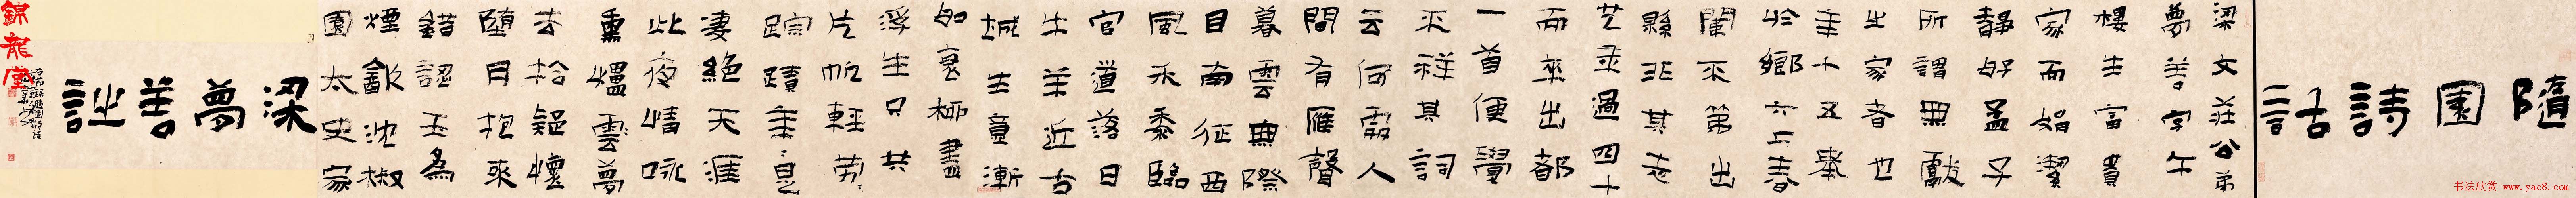 隨園詩話
梁文莊公弟
夢善字午
樓生富貴
家而娟潔
靜好孟子
所謂無獻
之家者也
年十五舉
於鄉六上春
闈不第出
縣非其志
過四十
而卒出都
一首便覺
不祥其詞
云何處人
間有雁聲
暮雲無際
目南征西
風禾黍臨
官道落日
牛羊近古
城士意漸
如衰柳盡
浮生只共
片帆輕勞
踪蹟年是
淒絕天涯
此夜情咏
熏爐雲夢
去拾疑懷
墮月抱來
錯認玉為
煙 沈椒
園太史家
梁夢善詩
錦龍堂
书法欣赏 www.yac8.com